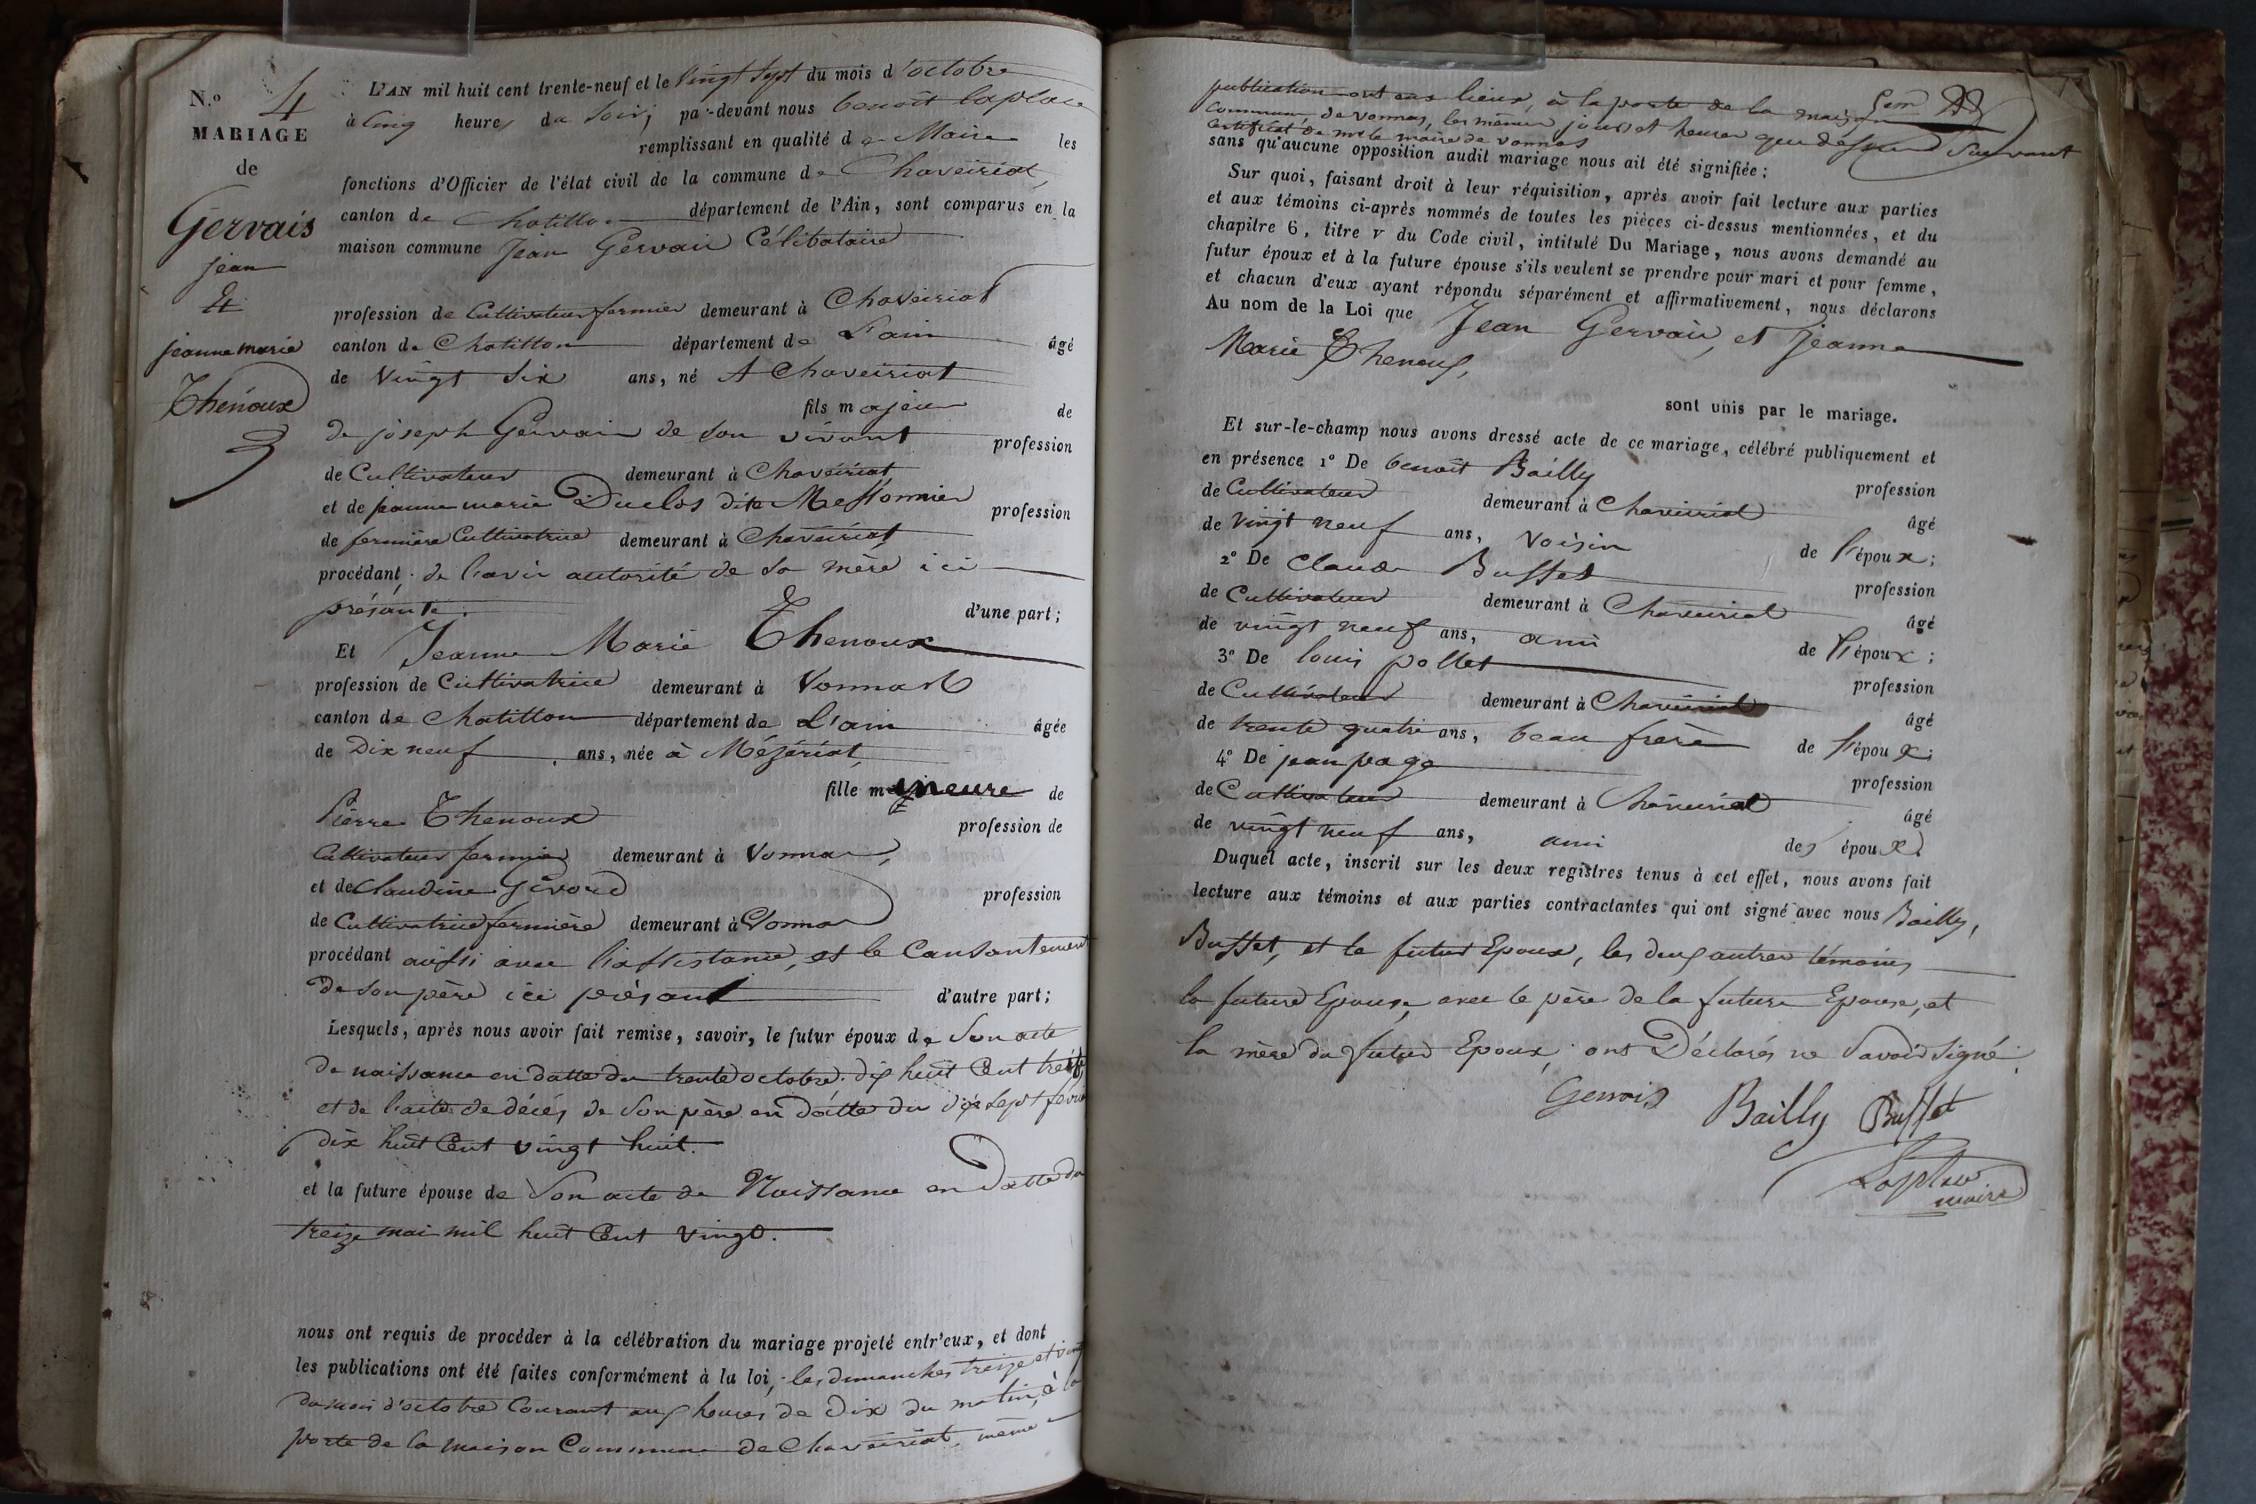 N.o 4
MARIAGE
de
Gervais
jean
Et
jeanne marie
Thenoux
L'AN mil huit cent trente-neuf et le vingt sept du mois d'octobre
à cinq heures du soir, par-devant nous benoît laplace
remplissant en qualité de Maire les
fonctions d'Officier de l'état civil de la commune de Chaveiriat,
canton de Chatillon département de l'Ain, sont comparus en la
maison commune Jean Gervais Célibataire
profession de Cultivateur fermier demeurant à Chaveiriat
canton de Chatillon département de L'ain âgé
de vingt six ans, né A Chaveiriat
fils majeur de
de joseph Gervais de son vivant profession
de Cultivateur demeurant à Chaveiriat
et de jeanne marie Duclos dite Messonnier profession
de fermière Cultivatrice demeurant à Chaveiriat
procédant de l'avis autorité de sa mère ici
présante. d'une part;
Et Jeanne Marie Thenoux
profession de Cultivatrice demeurant à Vonnas
canton de Chatillon département de L'ain âgée
de Dix neuf ans, née à Mézériat,
fille mineure de
Pierre Thenoux profession de
Cultivateur fermier demeurant à Vonnas,
et de Claudine Givord profession
de Cultivatrice fermière demeurant à Vonnas
procédant aussi avec l'asistance, et le Consantement
de son père ici présant d'autre part;
Lesquels, après nous avoir fait remise, savoir, le futur époux de Son acte
de naissance en datte du trente octobre dix huit Cent treize
et de l'acte de décés de Son père en datte du dix sept fevrier
dix huit Cent vingt huit.
et la future épouse de Son acte de Naissance en Datte du
treize mai mil huit Cent vingt.
nous ont requis de procéder à la célébration du mariage projeté entr'eux, et dont
les publications ont été faites conformément à la loi, les dimanches treize et vingt
du mois d'octobre Courant aux heures de Dix du matin, à la
porte de la maison Commune de Chaveiriat, même
publication ont eus lieux, à la porte de la maison
Commune de Vonnas, les mêmes jours et heures que dessus Suivant
Certificat de mr le maire de vonnas
sans qu'aucune opposition audit mariage nous ait été signifiée;
Sur quoi, faisant droit à leur réquisition, après avoir fait lecture aux parties
et aux témoins ci-après nommés de toutes les pièces ci-dessus mentionnées, et du
chapitre 6, titre V du Code civil, intitulé Du Mariage, nous avons demandé au
futur époux et à la future épouse s'ils veulent se prendre pour mari et pour femme,
et chacun d'eux ayant répondu séparément et affirmativement, nous déclarons
Au nom de la Loi que Jean Gervais, et Jeanne
Marie Thenoux,
sont unis par le mariage.
Et sur-le-champ nous avons dressé acte de ce mariage, célébré publiquement et
en présence 1o De benoît Bailly profession
de Cultivateur demeurant à Chaveiriat âgé
de vingt neuf ans, voisin de l'époux;
2o De Claude Buffet profession
de Cultivateur demeurant à Chaveiriat âgé
de vingt neuf ans, ami de l'époux;
3o De louis pollet profession
de Cultivateur demeurant à Chaveiriat âgé
de trente quatre ans, beau frère de l'époux;
4o De jean page profession
de Cultivateur demeurant à Chaveiriat âgé
de vingt neuf ans, ami des époux.
Duquel acte, inscrit sur les deux registres tenus à cet effet, nous avons fait
lecture aux témoins et aux parties contractantes qui ont signé avec nous Bailly,
Buffet, et le futur Epoux, les deux autres témoins
la future Epouse, avec le père de la future Epouse, et
la mère du futur Epoux, ont Déclarés ne Savoir Signé.
Gervais Bailly Buffet
Laplace
maire